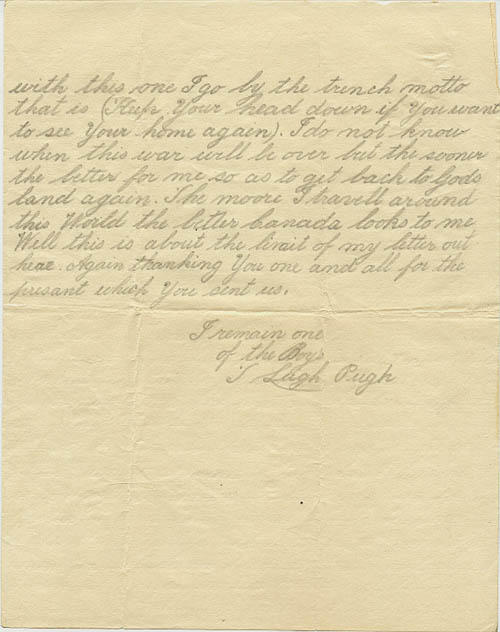 with this one I go by the trench motto
that is (Keep Your head down if You want
to see Your home again). I do not know
when this war will be over but the sooner
the better for me so as to get back to Gods
land again. The moore I travell around
this World the better Canada looks to me
Well this is about the limit of my letter out
hear. Again thanking You one and all for the
presant which You sent us.
I remain one
of the Boys
Leigh Pugh